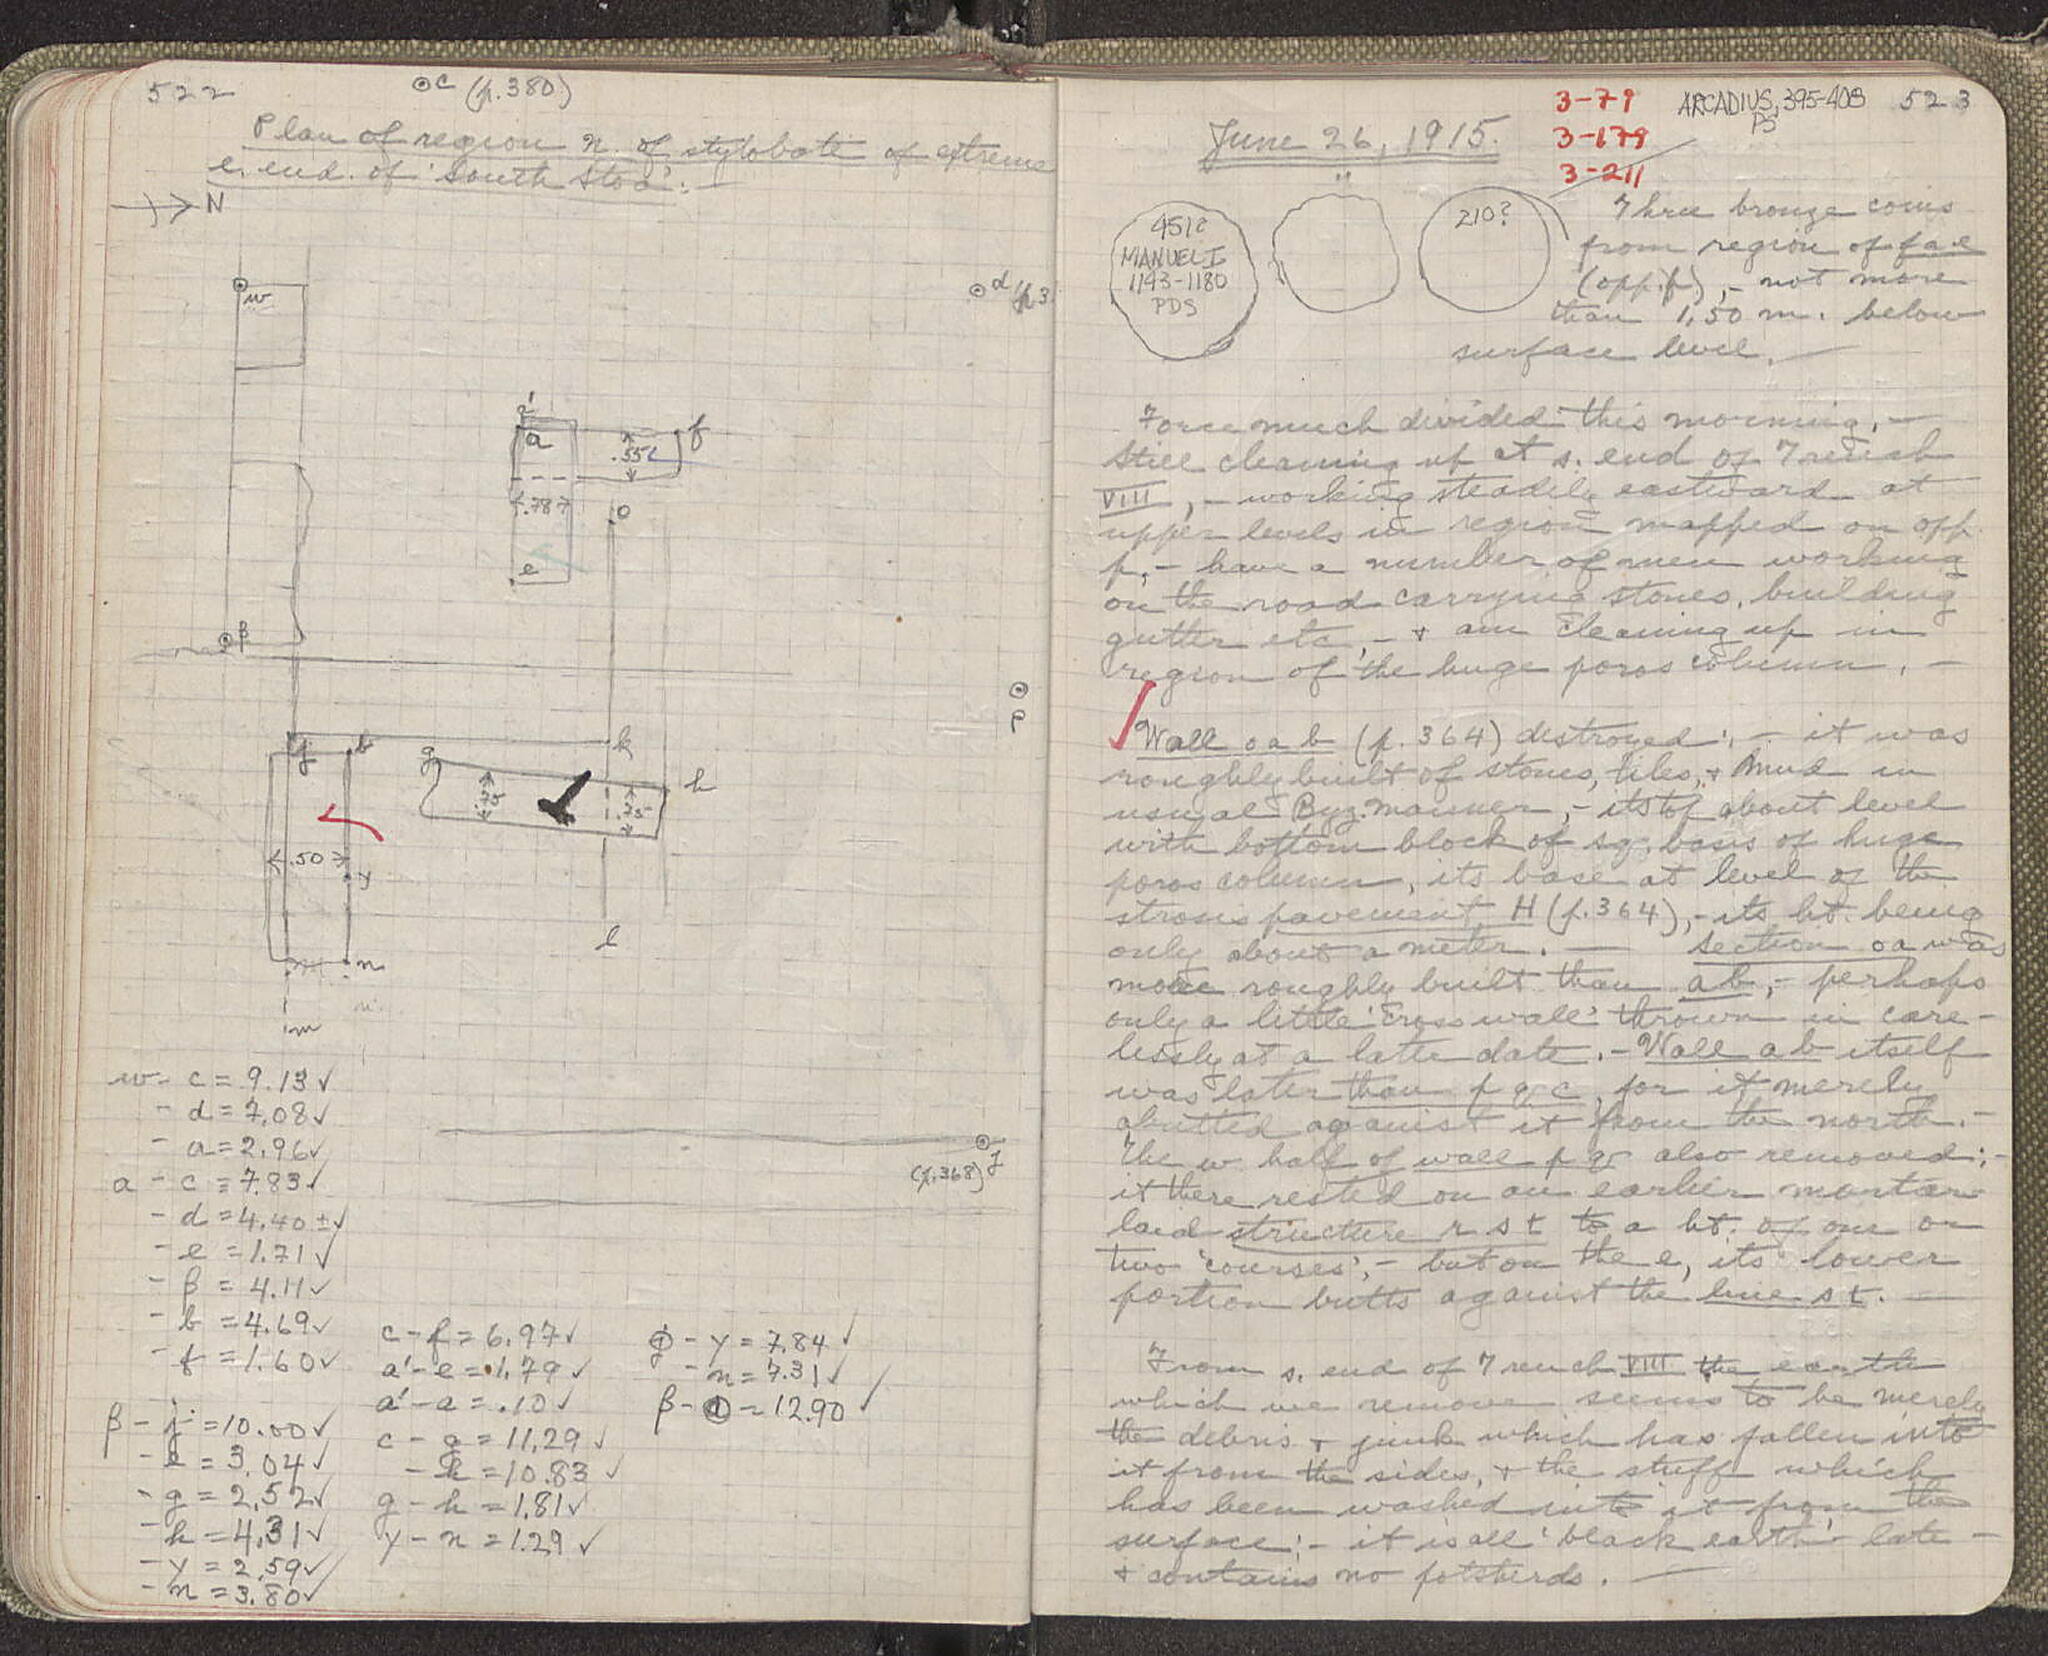 522
c (p. 380)
Plan of region n. of stylobate of extreme
e. end. of 'South Stoa'. —
N
w
d (p. 3
a'
a
f
.55
.78
o
e
β
P
j
b
k
g
h
.75
.75
.50
y
l
n
m
j
(p. 368)
w - c = 9.13 ✓
- d = 7.08 ✓
- a = 2.96 ✓
a - c = 7.83 ✓
- d = 4.40 ± ✓
- e = 1.71 ✓
- β = 4.11 ✓
- b = 4.69 ✓
- f = 1.60 ✓
β - j = 10.00 ✓
- l = 3.04 ✓
- g = 2.52 ✓
- h = 4.31 ✓
- y = 2.59 ✓
- n = 3.80 ✓
c - f = 6.97 ✓
a' - e = 1.79 ✓
a' - a = .10 ✓
c - g = 11.29 ✓
- h = 10.83 ✓
g - h = 1.81 ✓
y - n = 1.29 ✓
j - y = 7.84 ✓
- n = 7.31 ✓
β - d = 12.90 ✓
523
3-79
3-179
3-211
ARCADIUS, 395-408
PS
June 26, 1915.
451?
MANUEL I
1143-1180
PDS
210?
Three bronze coins
from region of fae
(opp. p.), - not more
than 1,50 m. below
surface level. —
Force much divided this morning, —
Still cleaning up at s. end of Trench
VIII, - working steadily eastward at
upper levels in region mapped on opp.
p, - have a number of men working
on the road carrying stones, building
gutter etc, - + am cleaning up in
region of the huge poros column. —
Wall oab (p. 364) destroyed: - it was
roughly built of stones, tiles, + mud in
usual Byz. manner, - its top about level
with bottom block of sq. basis of huge
poros column, its base at level of the
strosis pavement H (p. 364), - its ht. being
only about a meter. — section oa was
more roughly built than ab, - perhaps
only a little 'cross wall' thrown in care-
lessly at a later date. - Wall ab itself
was later than pqc, for it merely
abutted against it from the north. -
The w half of wall pq also removed: -
it there rested on an earlier mortar
laid structure rst to a ht. of one or
two 'courses', - but on the e, its lower
portion butts against the line st. —
From s. end of Trench VIII the earth
which we remove seems to be merely
the debris + junk which has fallen into
it from the sides, + the stuff which
has been washed into it from the
surface: - it is all 'black earth' - late -
+ contains no potsherds. —